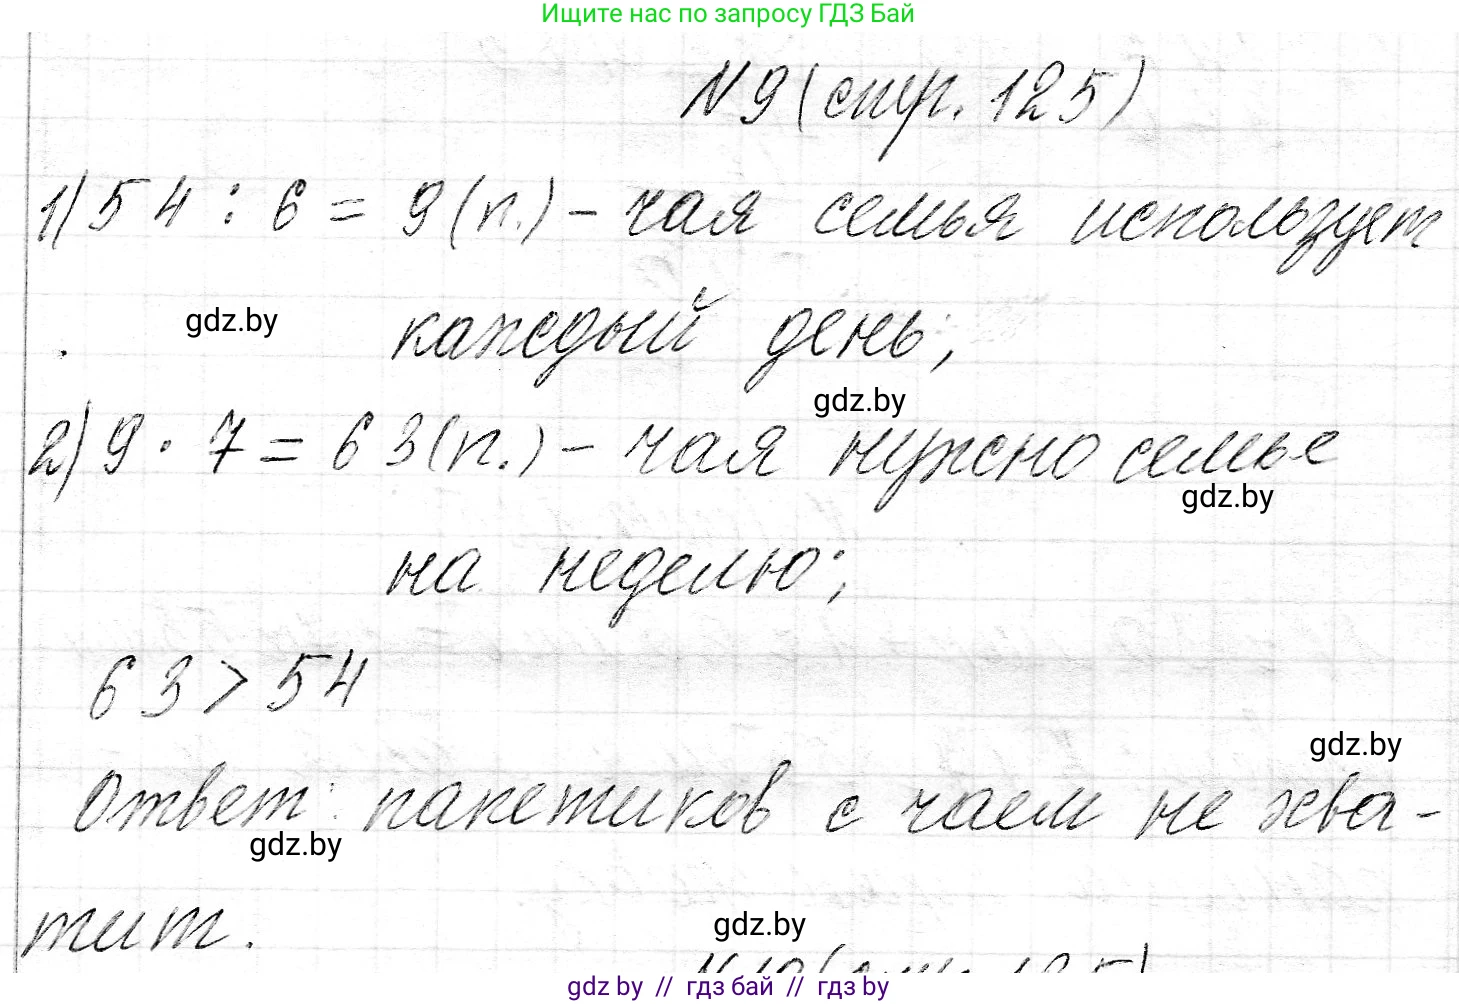 Ищите нас по запросу ГДЗ Бай
№9(стр. 125)
1) 54 : 6 = 9(п.) - чая семья использует
gdz.by
каждый день;
gdz.by
2) 9 · 7 = 63(п.) - чая нужно семье
gdz.by
на неделю;
63 > 54
gdz.by
Ответ: пакетиков с чаем не хва-
gdz.by
тит.
gdz.by
№10(стр. 125)
gdz.by // гдз бай // гдз by